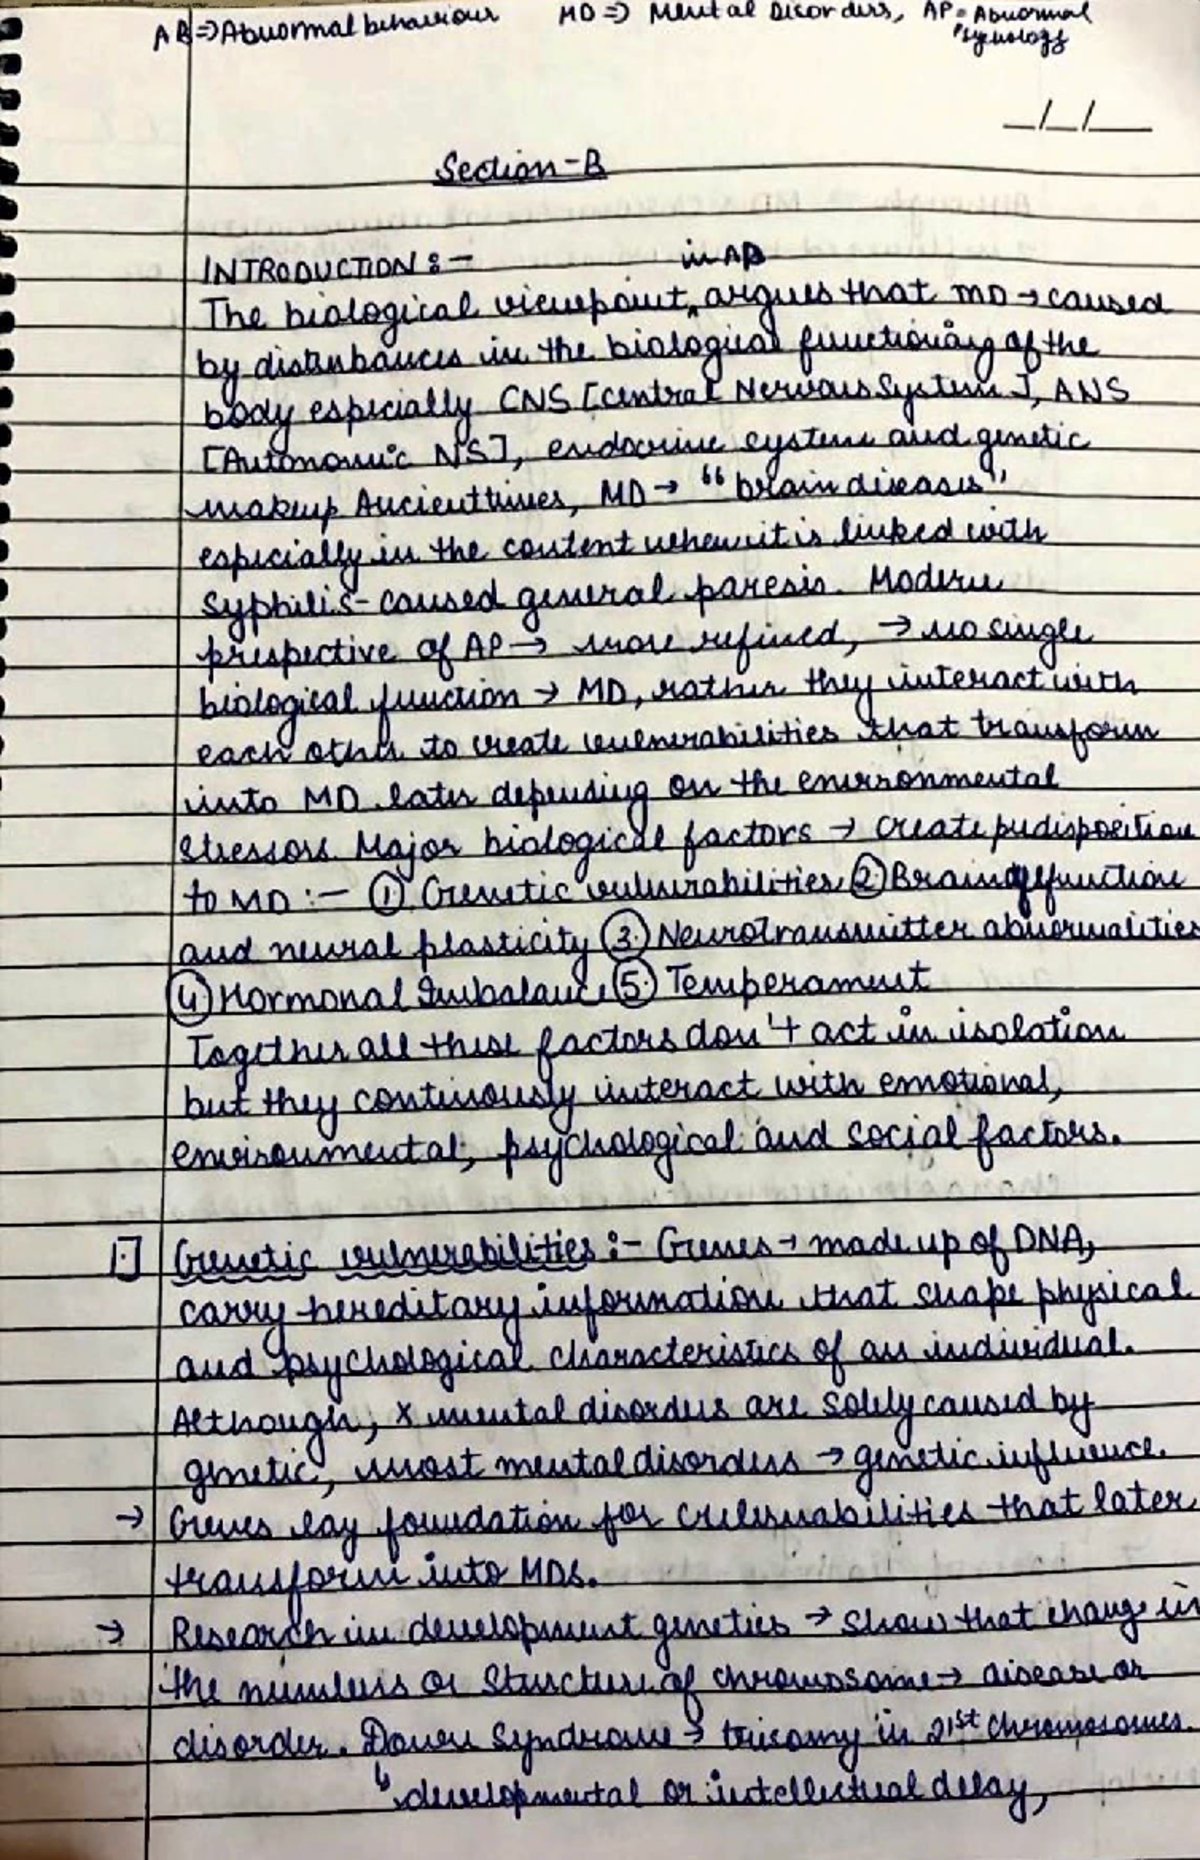 AB⇒Abnormal behaviour MD⇒ Mental Disorders, AP= Abnormal Psychology
_/_/__
Section-B
INTRODUCTION :-
The biological viewpoint in AB argues that MD → caused
by disturbances in the biological functioning of the
body especially CNS [Central Nervous System], ANS
[Autonomic NS], endocrine system and genetic
makeup Ancient times, MD → "brain diseases"
especially in the content when it is linked with
syphilis-caused general paresis. Modern
prespective of AP → more refined, → no single
biological function → MD, rather they interact with
each other to create vulnerabilities that transform
into MD later depending on the environmental
stressors. Major biological factors → create predisposition
to MD :- ① Genetic vulnerabilities ② Brain function
and neural plasticity ③ Neurotransmitter abnormalities
④ Hormonal Imbalance ⑤ Temperament
Together all these factors don't act in isolation
but they continously interact with emotional,
environmental, psychological and social factors.
1.] Genetic vulnerabilities :- Genes → made up of DNA,
carry hereditary information that shape physical
and psychological characteristics of an individual.
Although, x mental disorders are solely caused by
genetic, most mental disorders → genetic influence.
→ Genes lay foundation for vulnerabilities that later
transform into MDs.
→ Research in development genetics → show that change in
the numbers or structure of chromosome → disease or
disorder. Down Syndrome → trisomy in 21st chromosomes.
↳ developmental or intellectual delay,